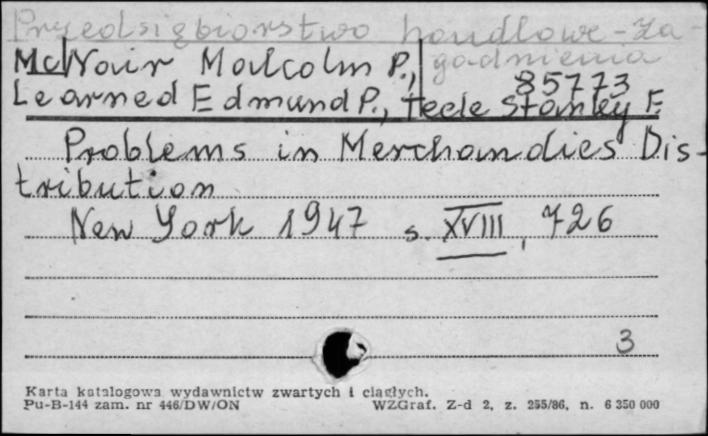 Przedsiębiorstwo handlowe - za-
gadnienia
McNair Malcolm P.,
85773
Learned Edmund P., Teele Stanley F.
Problems in Merchandies Dis-
tribution
New York 1947 s. XVIII, 726
3
Karta katalogowa wydawnictw zwartych i ciągłych.
Pu-B-144 zam. nr 446/DW/ON WZGraf. Z-d 2, z. 255/86, n. 6 350 000